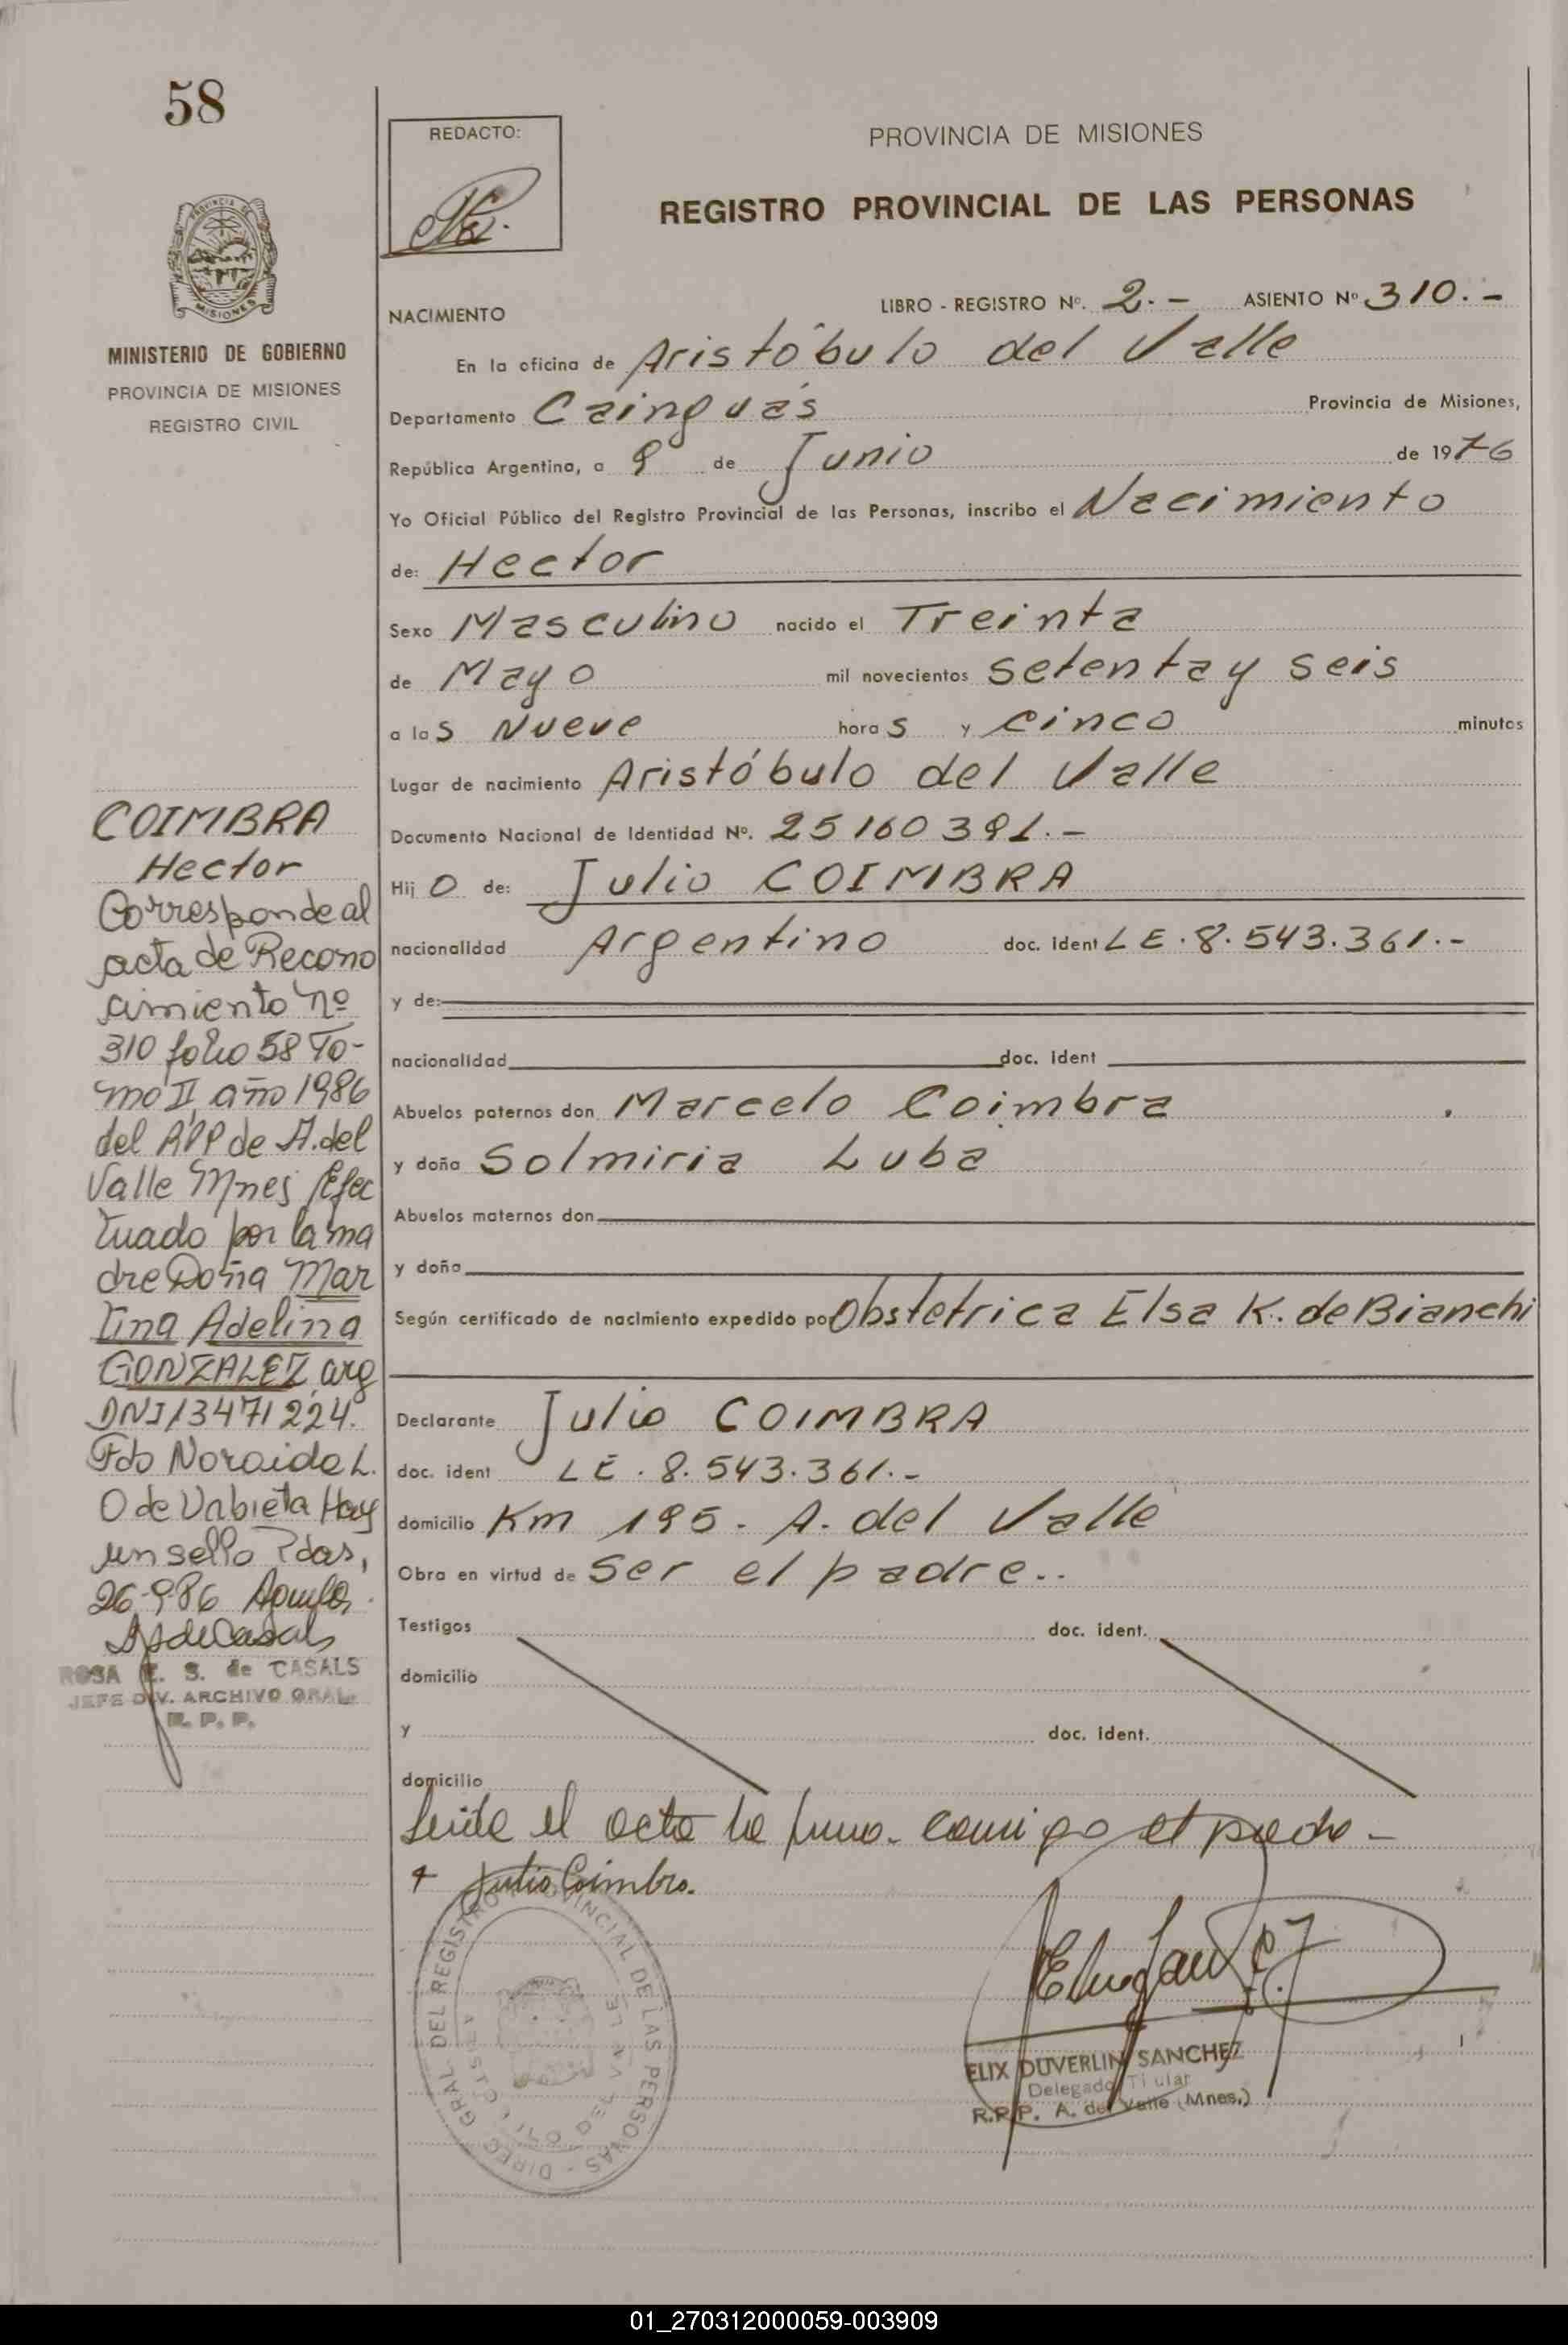 58
REDACTO:
PROVINCIA DE MISIONES
REGISTRO PROVINCIAL DE LAS PERSONAS
PROVINCIA DE
MISIONES
MINISTERIO DE GOBIERNO
PROVINCIA DE MISIONES
REGISTRO CIVIL
NACIMIENTO
LIBRO - REGISTRO Nº. 2.- ASIENTO Nº 310.-
En la oficina de Aristóbulo del Valle
Departamento Cainguás Provincia de Misiones,
República Argentina, a 9 de Junio de 1976
Yo Oficial Público del Registro Provincial de las Personas, inscribo el Nacimiento
de: Hector
Sexo Masculino nacido el Treinta
de Mayo mil novecientos setenta y seis
a las Nueve horas y cinco minutos
Lugar de nacimiento Aristóbulo del Valle
Documento Nacional de Identidad Nº. 25160391.-
Hijo de: Julio COIMBRA
nacionalidad Argentino doc. ident LE.8.543.361.-
y de:
nacionalidad doc. ident
Abuelos paternos don Marcelo Coimbra
y doña Solmiria Luba
Abuelos maternos don
y doña
Según certificado de nacimiento expedido por Obstetrica Elsa K. de Bianchi
Declarante Julio COIMBRA
doc. ident LE.8.543.361.-
domicilio Km 195. A. del Valle
Obra en virtud de ser el padre..
Testigos doc. ident.
domicilio
y doc. ident.
domicilio
Leida el acta la firma conmigo el padre -
+ Julio Coimbra.
COIMBRA
Hector
Corresponde al
acta de Recono
cimiento nº
310 folio 58 To-
mo II año 1986
del RPP de A. del
Valle Mnes Efec
tuado por la ma
dre Doña Mar
tina Adelina
GONZALEZ, arg
DNI 13471224.
Fdo Noraide L.
O de Urbieta Hay
un sello Pdas,
26-9-86
ROSA E. S. de CASALS
JEFE DIV. ARCHIVO GRAL.
R. P. P.
DIREC. GRAL DEL REGISTRO PROVINCIAL DE LAS PERSONAS
ARISTOBULO DEL VALLE
ELIX DUVERLIN SANCHEZ
Delegado Titular
R.P.P. A. del Valle (Mnes.)
01_270312000059-003909